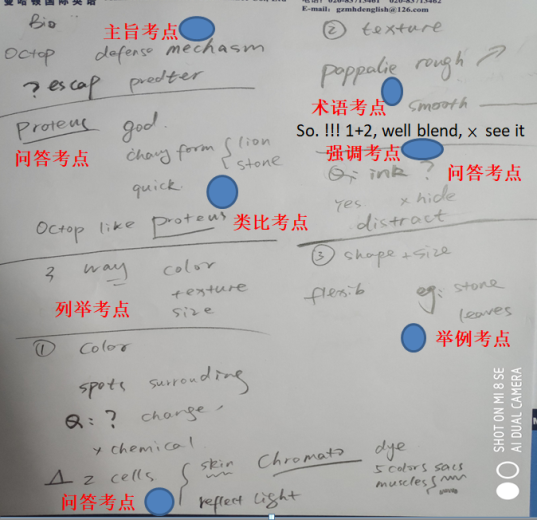 曼哈顿国际英语
E-mail: gzmhdenglish@126.com
Bio
主旨考点
Octop defense mechasm
? escap predter
Proteus god.
问答考点
chang form { lion
stone
quick.
类比考点
Octop like Proteus
3 way color
texture
size
列举考点
① Color
spots surrouding
Q: ? change
x chemical.
Δ 2 cells { skin Chromato dye
5 colors sacs
muscles
reflect light
问答考点
② texture
poppalie rough
术语考点
smooth
So. !!! 1+2, well blend, × see it
强调考点
Q: ink ?
问答考点
yes x hide
distract
③ shape + size
flexib eg: stone
leaves
举例考点
SHOT ON MI 8 SE
AI DUAL CAMERA